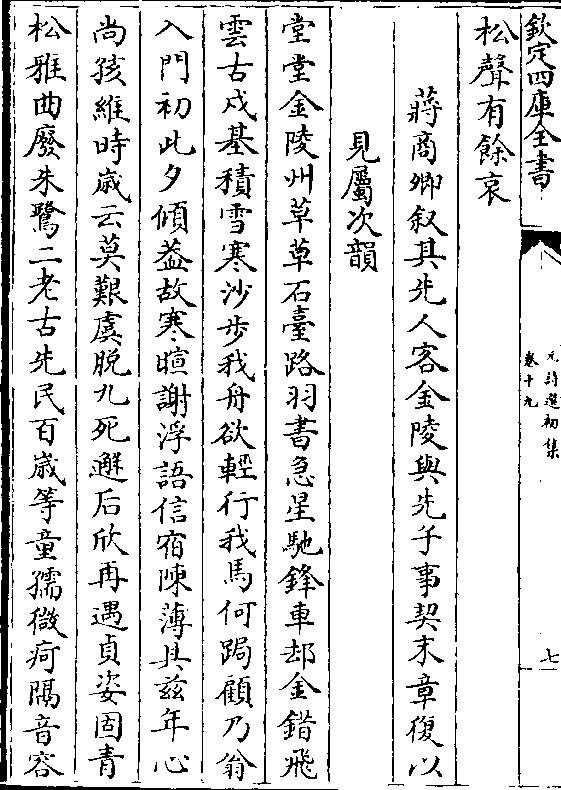 欽定四庫全書
元詩選初集
卷十九
七
松聲有餘哀
蔣商卿叙其先人客金陵與先子事契末章復以
見屬次韻
堂堂金陵州草草石臺路羽書急星馳鋒車却金錯飛
雲古戍基積雪寒沙步我舟欲輕行我馬何跼顧乃翁
入門初此夕傾葢故寒暄謝浮語信宿陳薄具兹年心
尚孩維時歲云莫艱虞脫九死邂后欣再遇貞姿固青
松雅曲廢朱鷺二老古先民百歲等童孺微疴隔音容